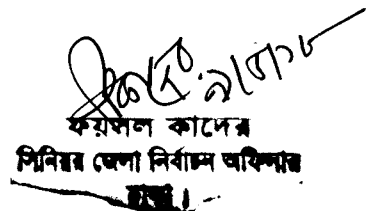 ফয়সল কাদের
সিনিয়র জেলা নির্বাচন অফিসার
ঢাকা।